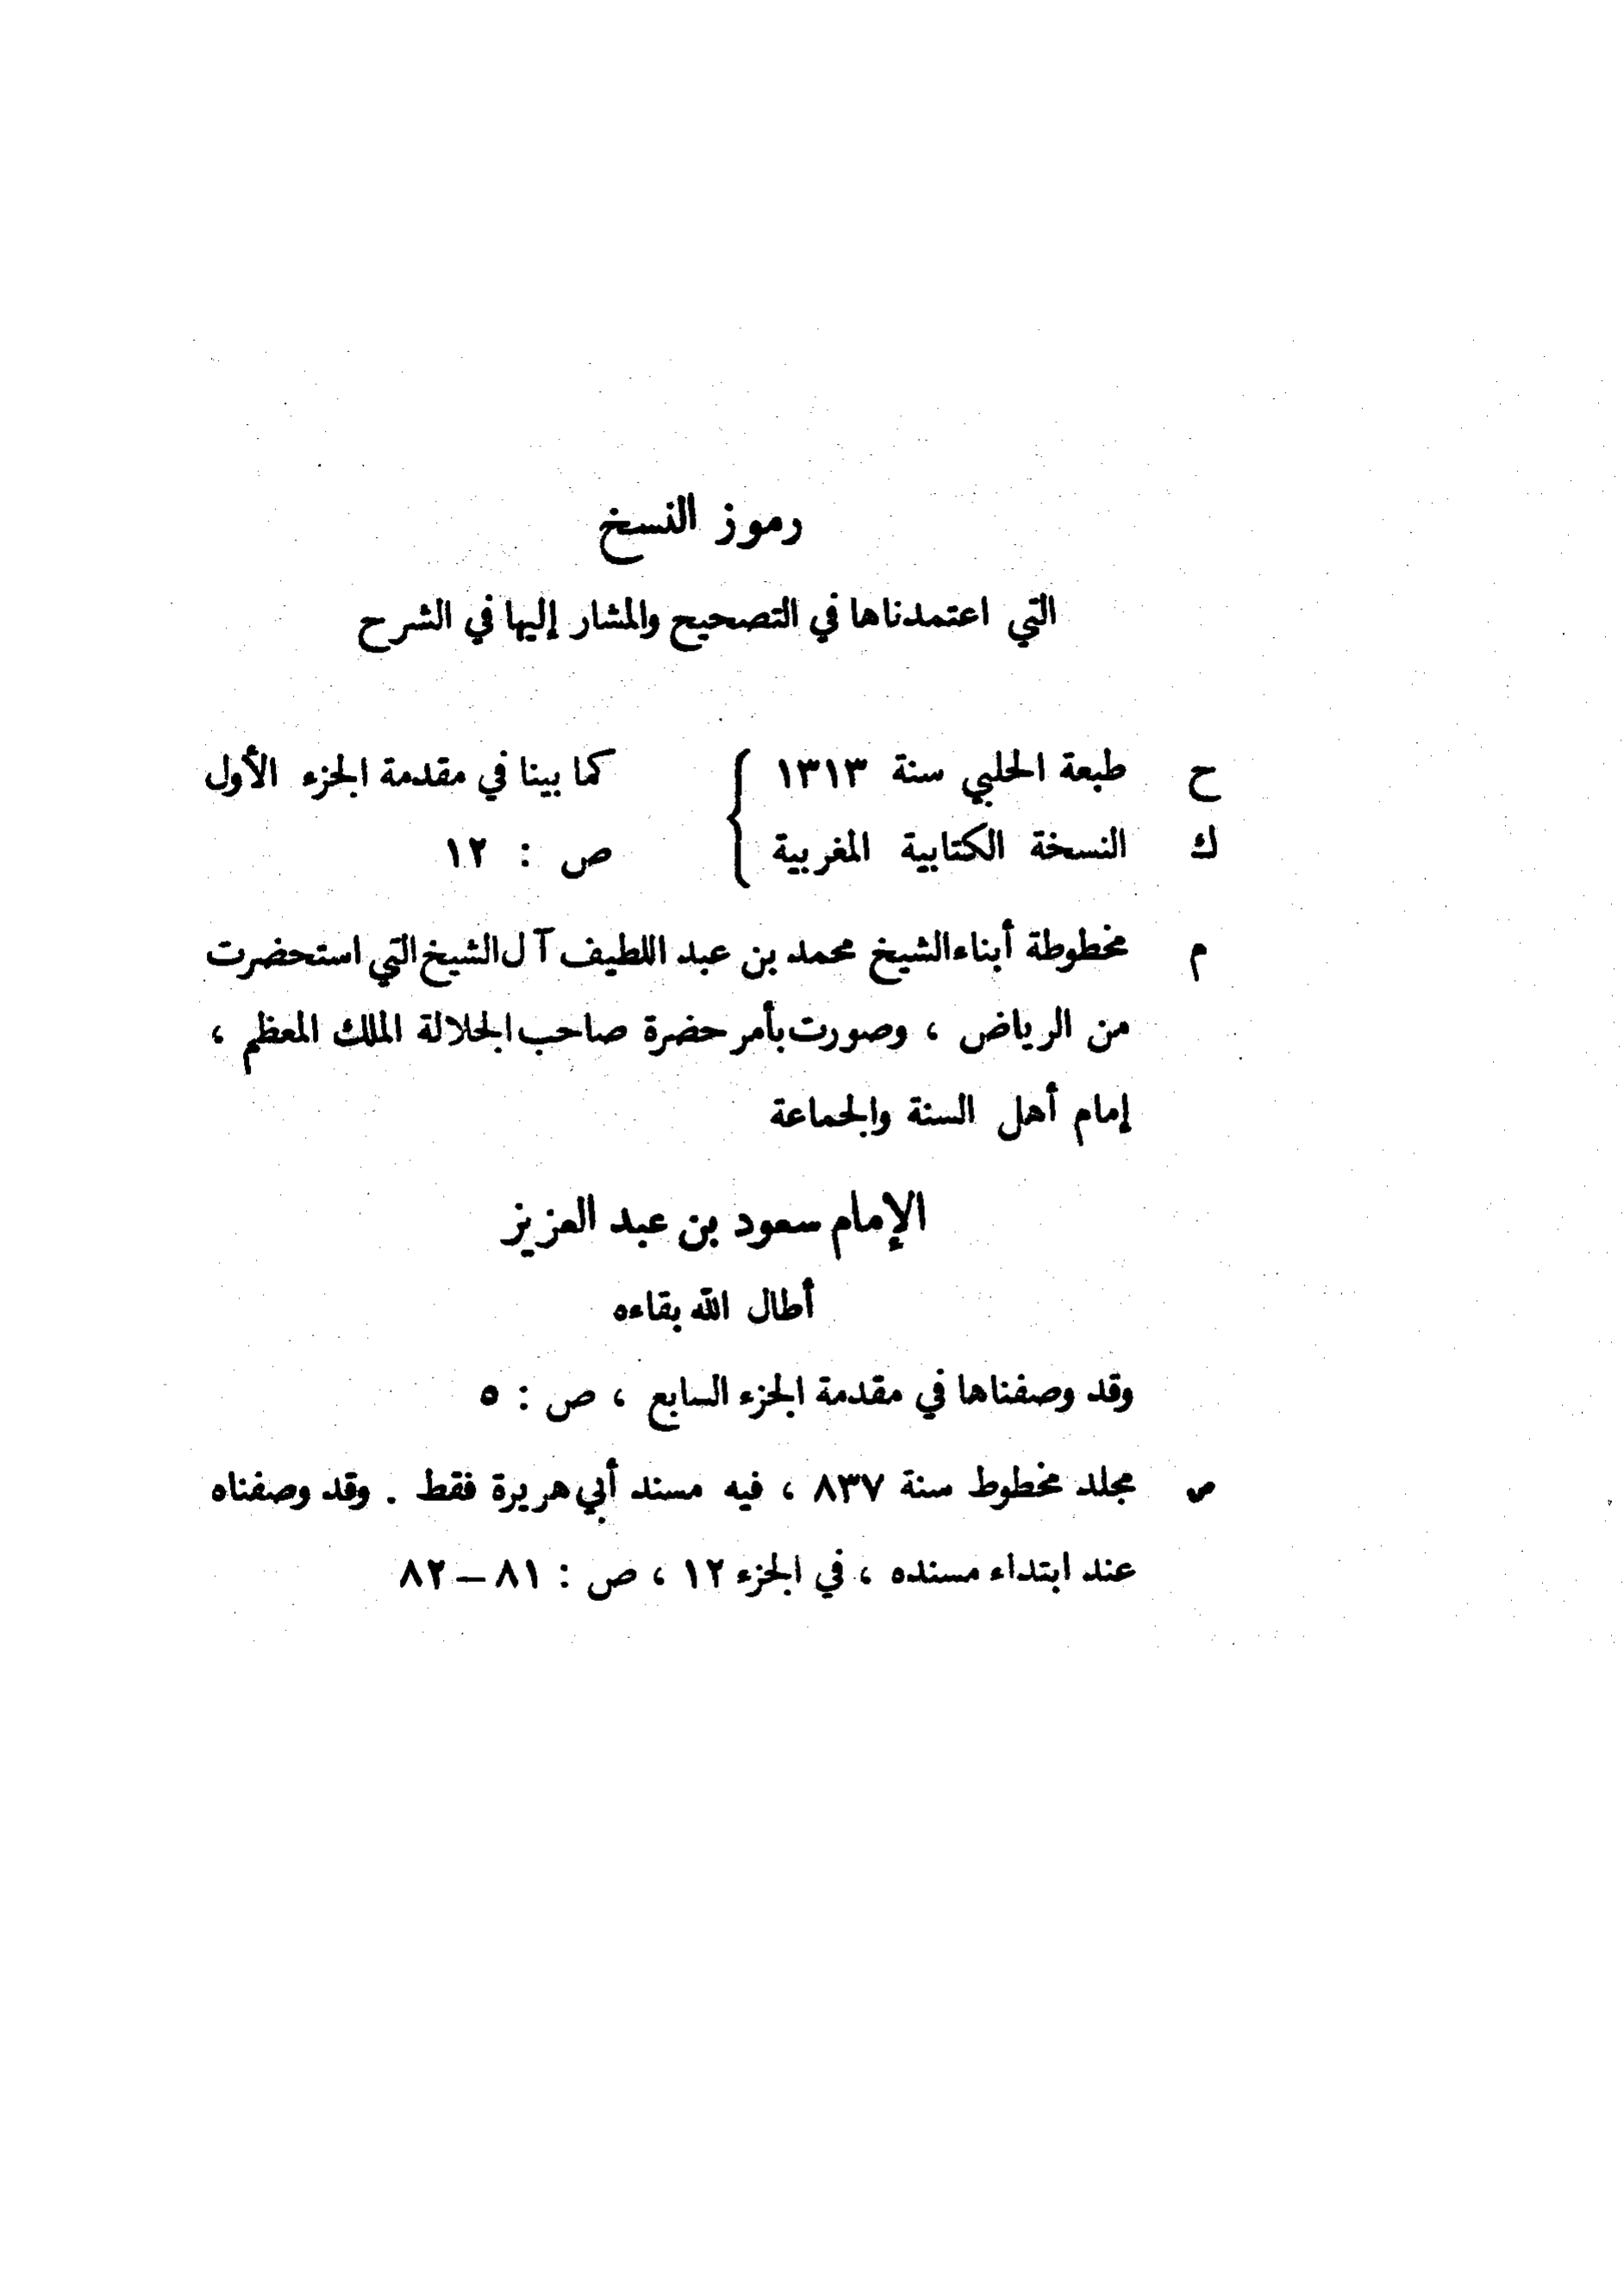 رموز النسخ
التي اعتمدناها في التصحيح والمشار إليها في الشرح
ح طبعة الحلبي سنة ١٣١٣ } كما بينا في مقدمة الجزء الأول
ك النسخة الكتابية المغربية } ص : ١٢
م مخطوطة أبناء الشيخ محمد بن عبد اللطيف آل الشيخ التي استحضرت
من الرياض ، وصورت بأمر حضرة صاحب الجلالة الملك المعظم ،
إمام أهل السنة والجماعة
الإمام سعود بن عبد العزيز
أطال الله بقاءه
وقد وصفناها في مقدمة الجزء السابع ، ص : ٥
ص مجلد مخطوط سنة ٨٣٧ ، فيه مسند أبي هريرة فقط . وقد وصفناه
عند ابتداء مسنده ، في الجزء ١٢ ، ص : ٨١ – ٨٢